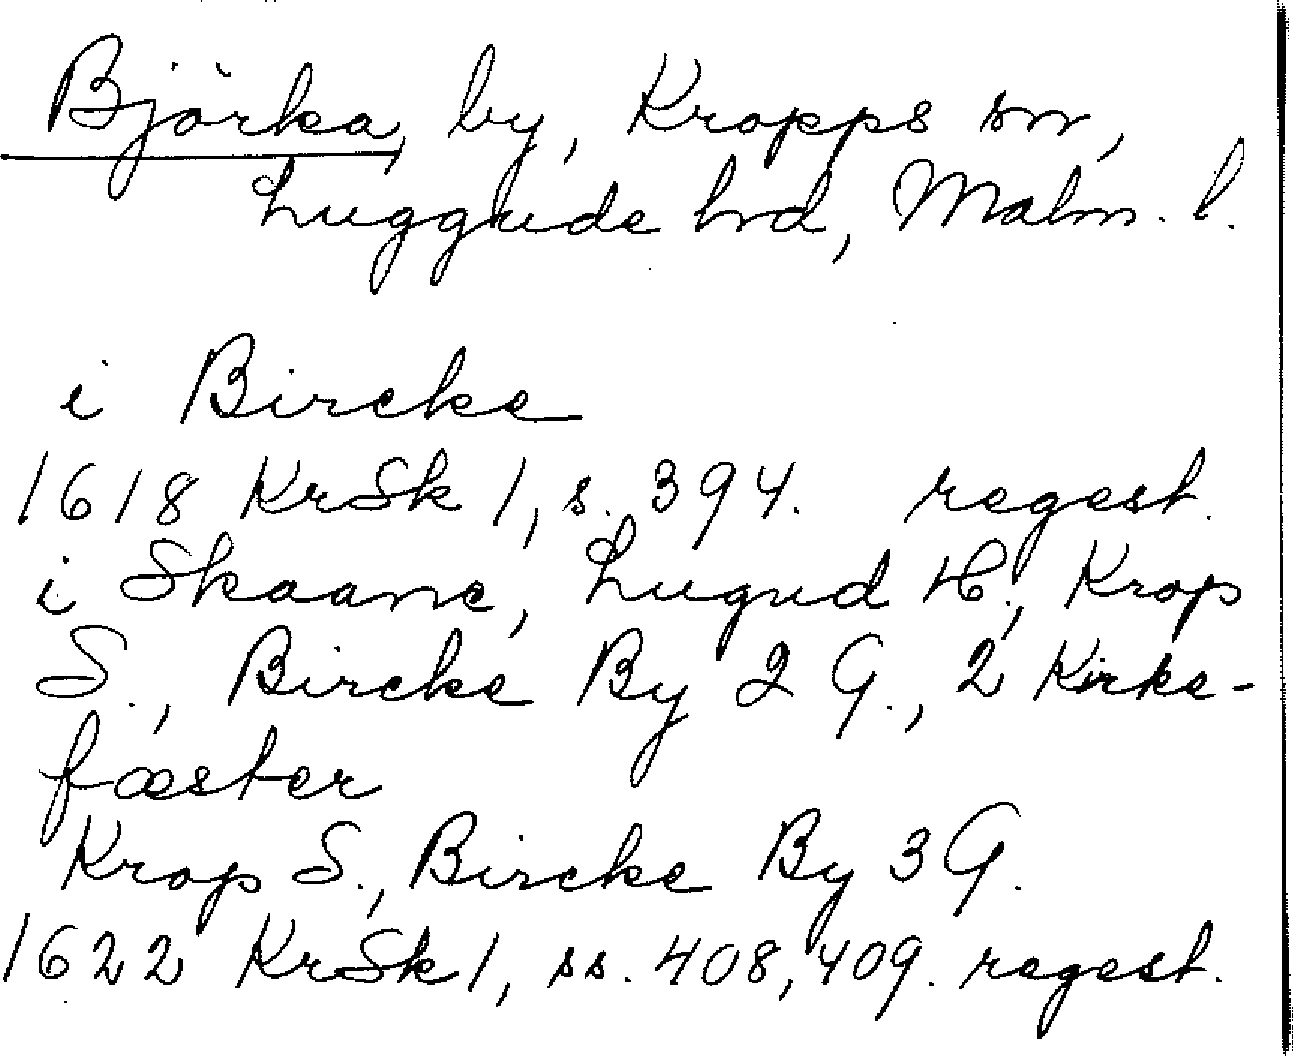 Björka, by, Kropps sn,
Luggude hd, Malm. l.
i Bircke
1618 KrSk 1, s. 394. regest.
i Skaane, Lugud H., Krop
S., Bircke By 2 G., 2 Kirke-
fæster
Krop S., Bircke By 3 G.
1622 KrSk 1, ss. 408, 409. regest.